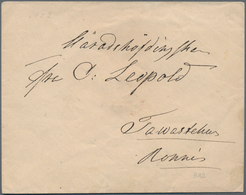 Häradshöfdingskan
fru C: Leopold
Tawastehus
Rönni